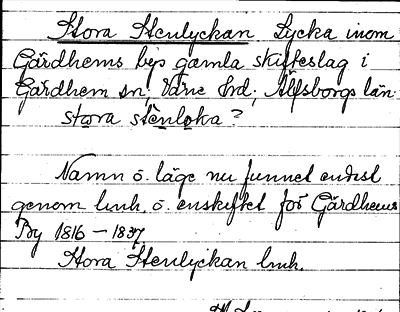 Stora Stenlyckan Lycka inom
Gärdhems bys gamla skifteslag i
Gärdhem sn, Väne hd, Älfsborgs län
stora stenloka?
Namn o. läge nu funnet endast
genom lmh. o. enskiftet för Gärdhems
By 1816-1837
Stora Stenlyckan lmh.